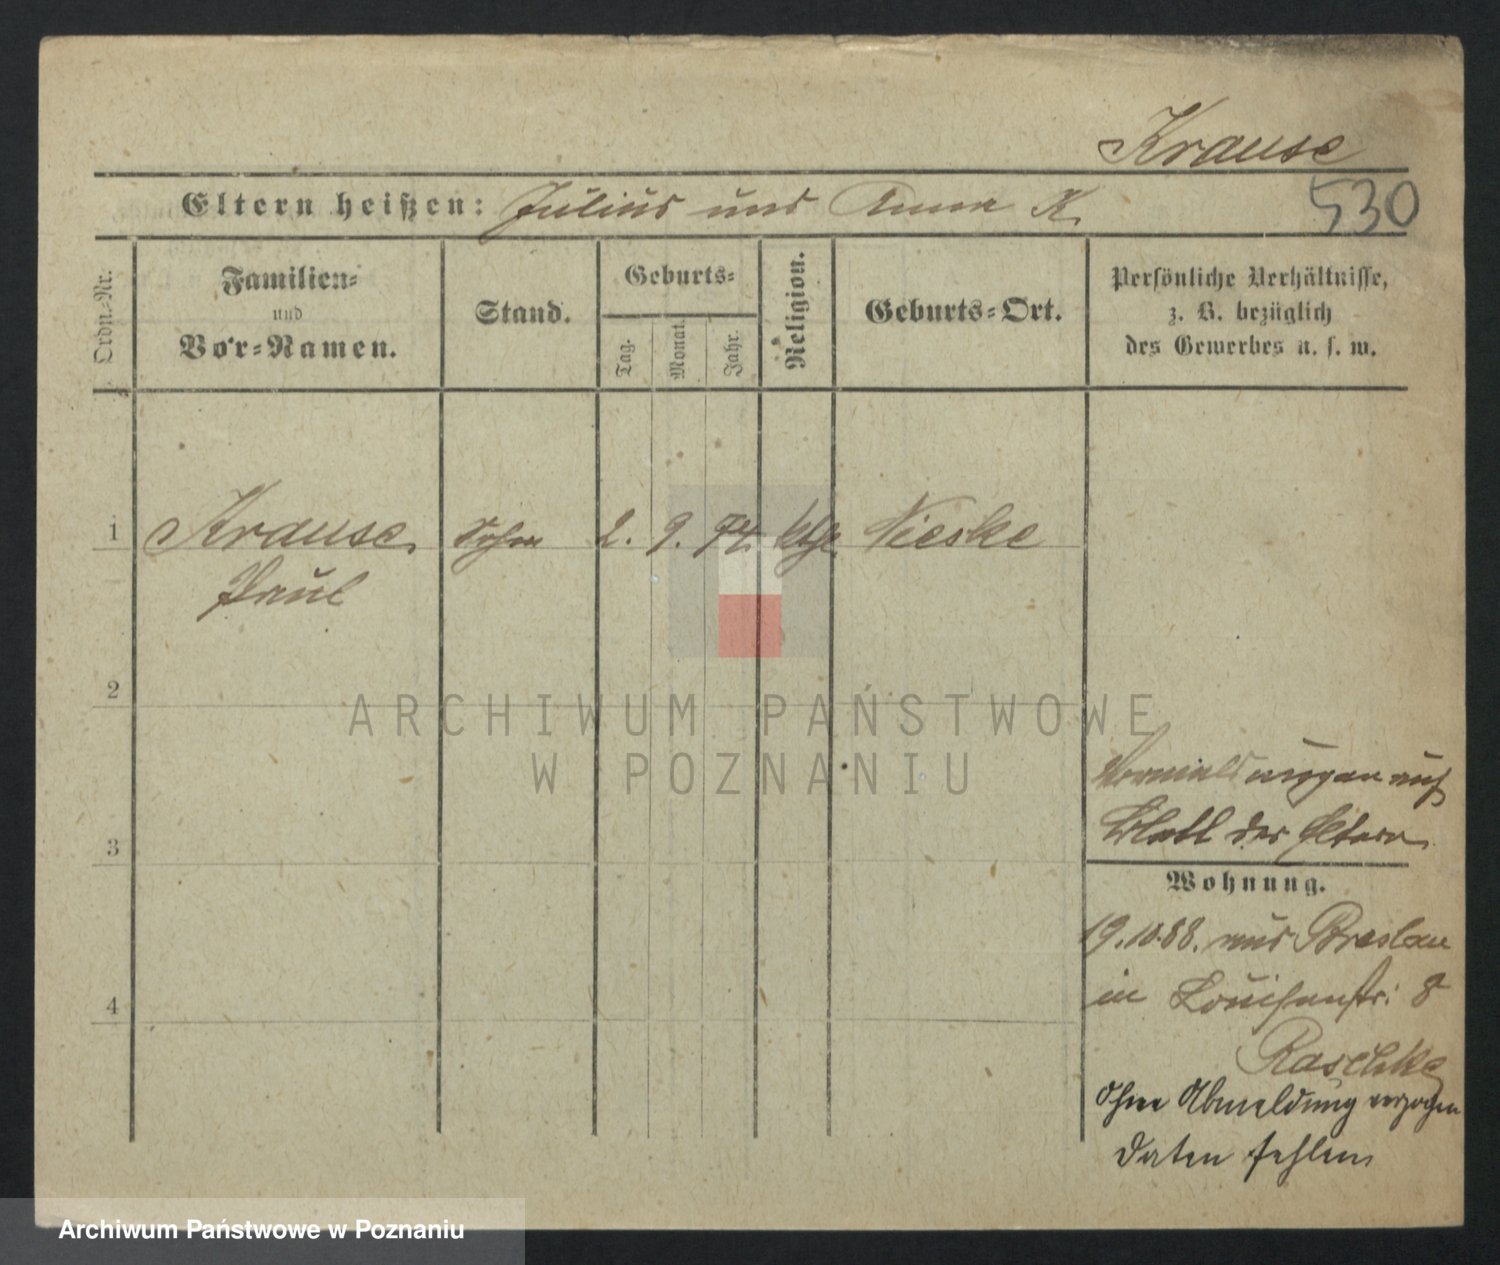 Krause
530
Eltern heißen: Julius und Anna K.
Ordn.-Nr.
Familien-
und
Vor-Namen.
Stand.
Geburts-
Tag.
Monat.
Jahr.
Religion.
Geburts-Ort.
Persönliche Verhältnisse,
z. B. bezüglich
des Gewerbes u. s. w.
1 Krause Sohn 2. 9. 74. kth. Nieske
Paul
2
ARCHIWUM PAŃSTWOWE
W POZNANIU
auf
Blatt der Eltern
3
Wohnung.
19.10.88. aus Breslau
in Louisenstr: 8
4
Raschke
Ohne Abmeldung verzogen
Daten fehlen
Archiwum Państwowe w Poznaniu